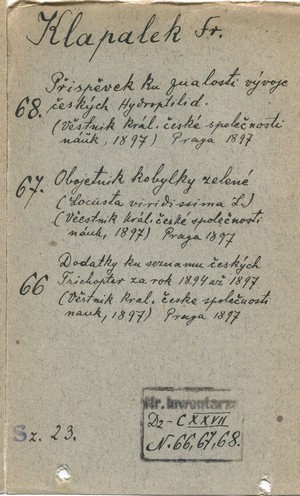 Klapalek Fr.
Příspěvek ku znalosti vývoje
68. českých Hydroptilid.
(Věstnik král. české společnosti
náuk, 1897) Praga 1897
67. Obojetnik kobylky zelené
(Locusta viridissima L.)
(Věestnik král. české společnosti
náuk, 1897) Praga 1897
Dodatky ku seznamu českých
66 Trichopter za rok 1894 až 1897
(Věstnik kral. česke společnosti
nauk, 1897) Praga 1897
Nr. Inwentarza
Dz-C XXVII
N. 66, 67, 68.
Sz. 23.